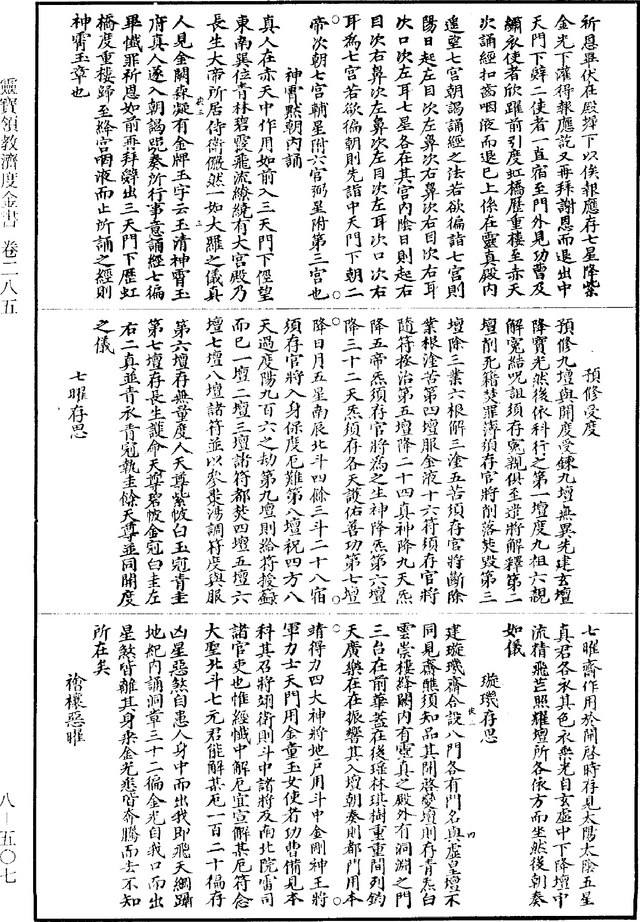 祈恩畢伏在殿墀下以俟報應存七星降紫
金光下灌得報應訖又再拜謝恩而退出中
天門下辭二使者一直宿至門外見功曹及
繡衣使者欣躍前引度虹橋歷重樓至赤天
次誦經扣齒咽液而退已上係在靈真殿内
遙望七宮朝謁誦經之法若欲徧詣七宮則
陽日起左目次左鼻次右鼻次右目次右耳
次口次左耳七星各在其宮内陰日則起右
目次右鼻次左鼻次左目次左耳次口次右
耳為七宮若欲徧朝則先詣中天門下朝二
帝次朝七宮輔星附六宮弼星附第三宮也
神霄黙朝内誦
真人在赤天中作用如前入三天門下徑望
東南巽位青林碧霞飛流繚繞有大宮殿乃
長生大帝所居侍衛儼然一如大羅之儀真
人見金闕森凝有金牌玉字云玉清神霄玉
府真人遂入朝謁咒奏所行事意誦經七徧
畢懴罪祈恩如前再拜辭出三天門下歷虹
橋度重樓歸至絳宮咽液而止所誦之經則
神霄玉章也
預修受度
預修九壇與開度受鍊九壇無異先建玄壇
降寶光然後依科行之第一壇度九祖六親
解寃結呪詛須存寃親俱至遣將解釋第二
壇削死籍焚罪簿須存官將削落焚毀第三
壇除三業六根解三塗五苦須存官將斷除
業根塗苦第四壇服金液十六符須存官將
隨符採治第五壇降二十四真神降九天炁
降五帝炁須存官將為之生神降炁第六壇
降三十二天炁須存各天護佑善功第七壇
降日月五星南辰北斗四餘三斗二十八宿
須存官將入身保度厄難第八壇祝四方八
天過度陽九百六之劫第九壇則給符授籙
而已一壇二壇三壇諸符都焚四壇五壇六
壇七壇八壇諸符並以參棗湯調符度與服
第六壇存無量度人天尊紫帔白玉冠青圭
第七壇存長生護命天尊碧帔金冠白圭左
右二真並青衣青冠執圭餘天尊並同開度
之儀
七曜存思
七曜齋作用於開啓時存見太陽太陰五星
真君各衣其色衣乘光自玄虛中下降壇中
流精飛芒照耀壇所各依方而坐然後朝奏
如儀
璇璣存思
建璇璣齋合設八門各有門名與虛皇壇不
同見齋醮須知品其開啓變壇則存青炁白
雲崇樓絳闕内有靈真之殿外有洞淵之門
三台在前華蓋在後瑤林琪樹重重間列鈞
天廣樂在在振響其入壇朝奏則都門用本
靖得力四大神將地戶用斗中金剛神王將
軍力士天門用金童玉女使者功曹備見本
科其召將翊衛則斗中諸將及南北院雷司
諸官吏也惟經懴中解厄宜宣解其厄符念
大聖北斗七元君能解某厄一百二十徧存
凶星惡煞自患人身中而出我即飛天綱躡
地紀内誦洞章三十二徧金光自我口而出
星煞皆離其身乘金光炁皆奔騰而去不知
所在矣
禬禳惡曜
靈寶領教濟度金書 卷二八五
八－五〇七